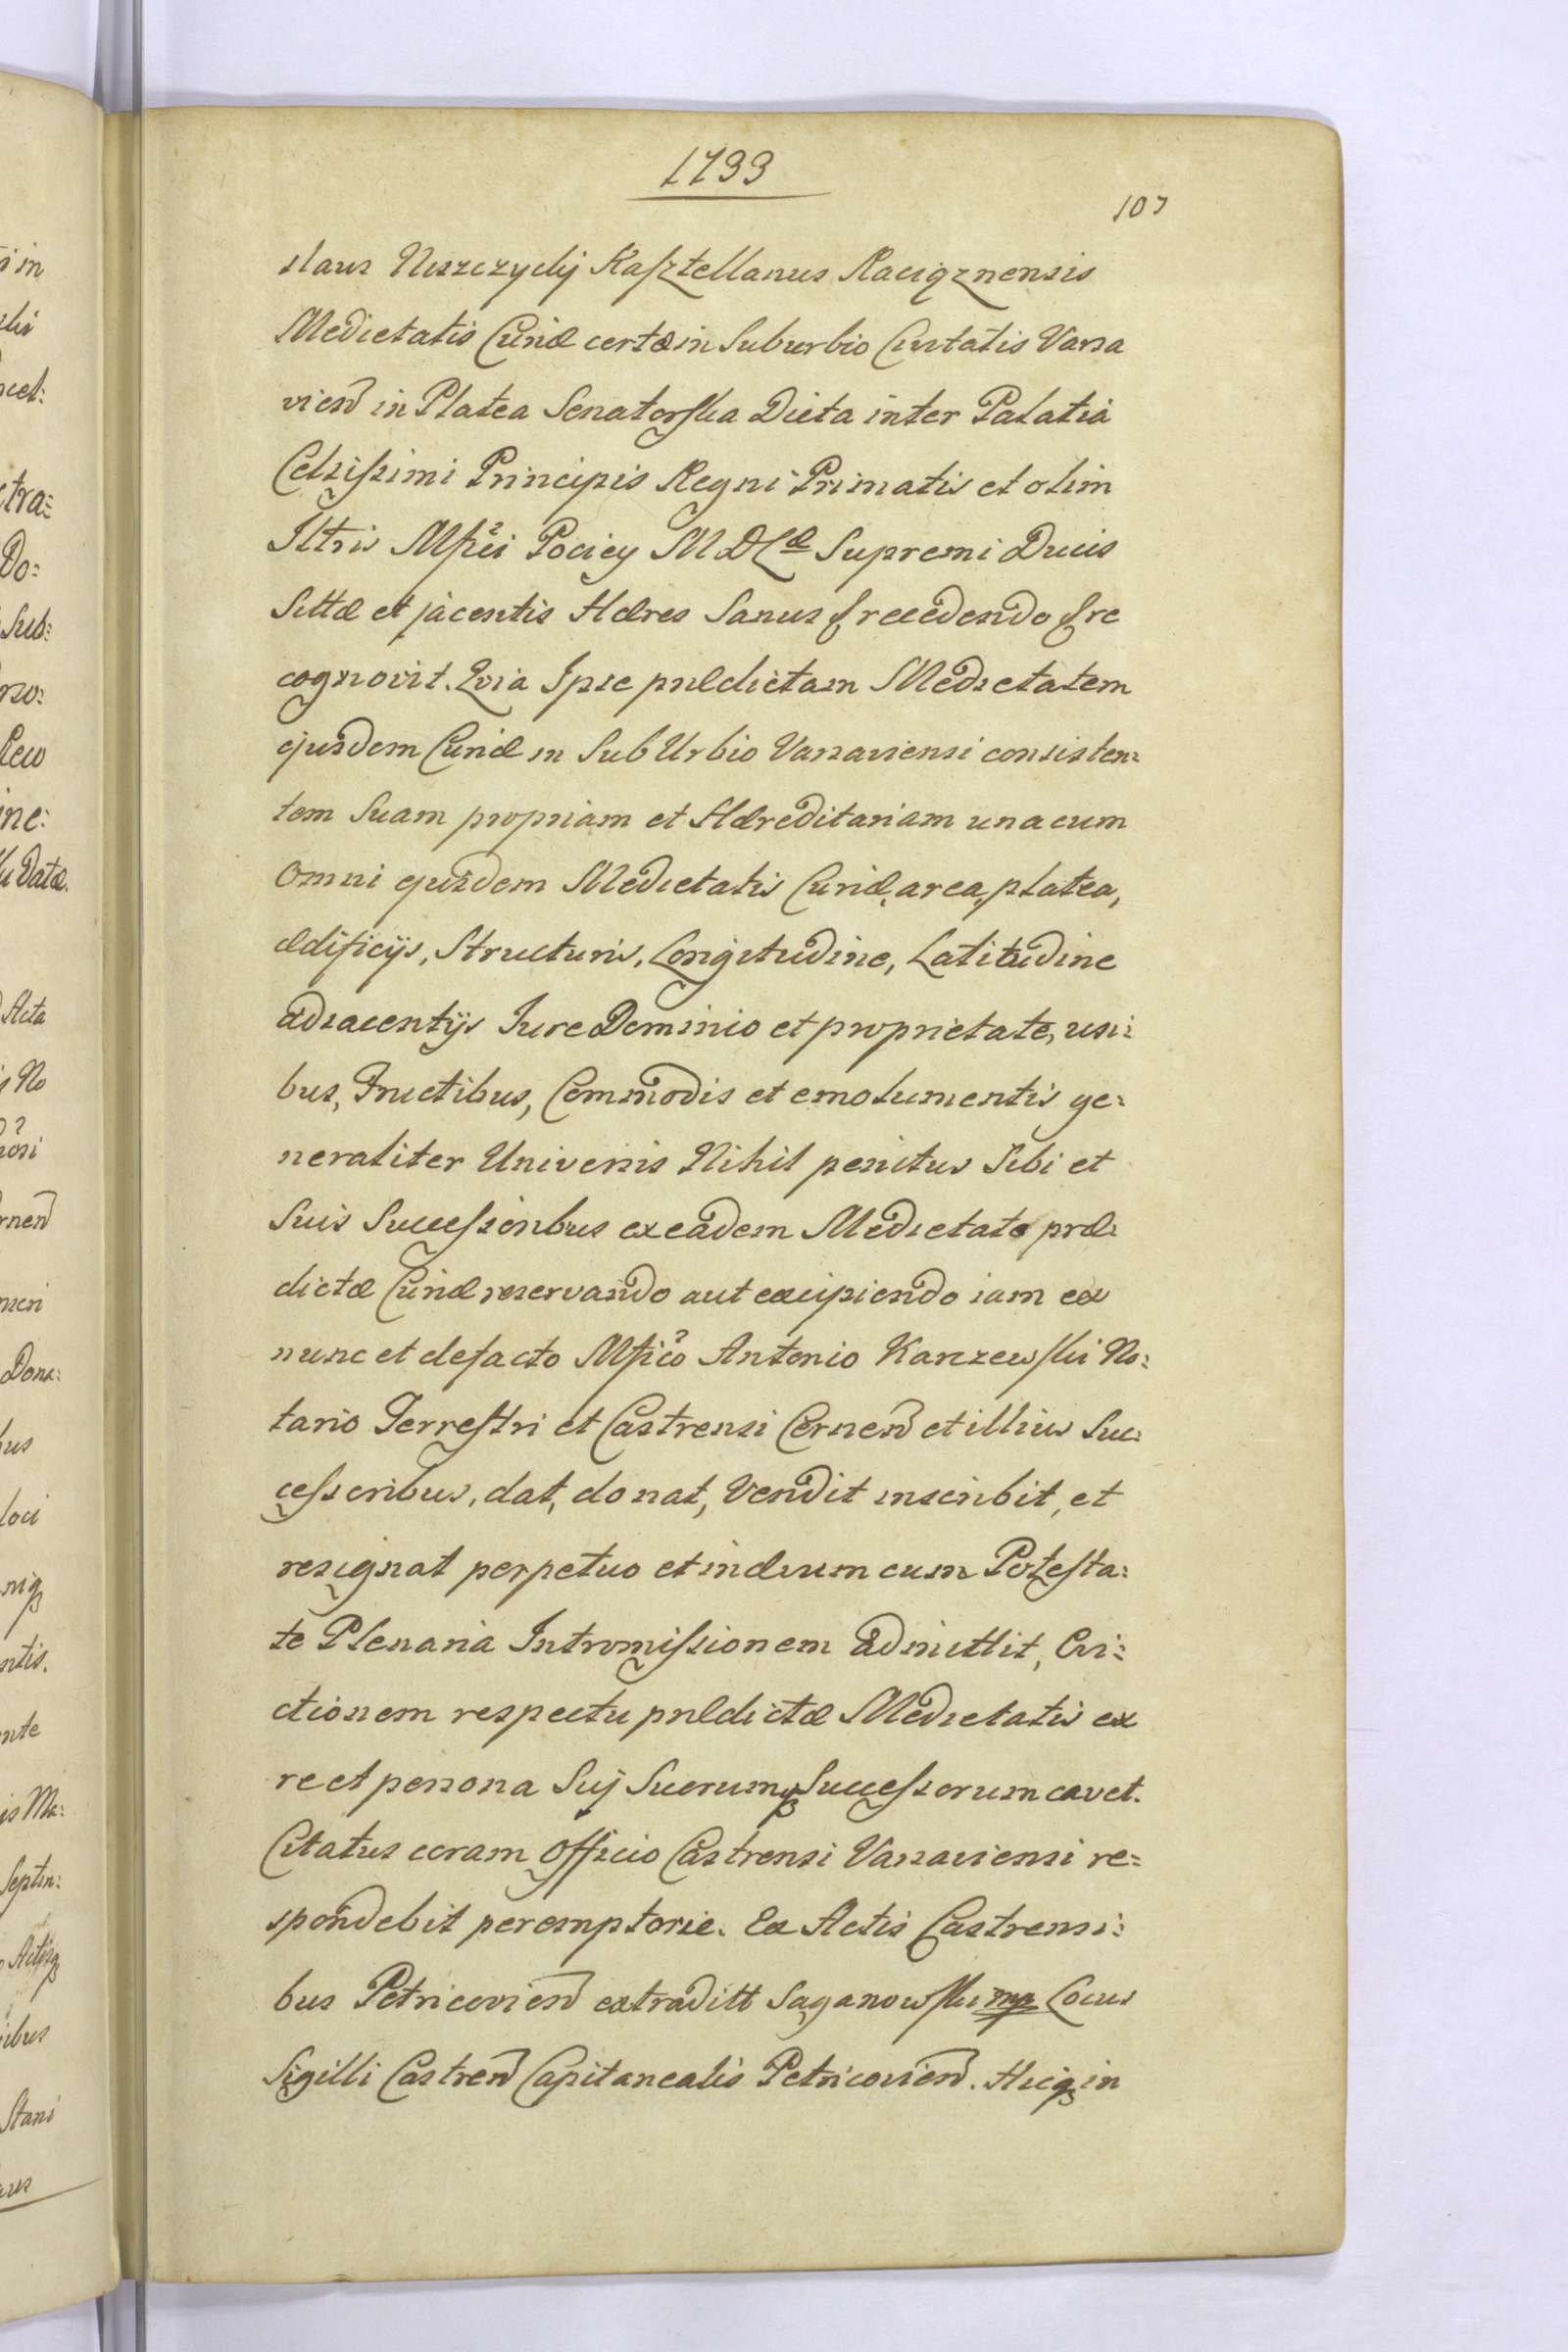 1733
107
slaus Uszczycký Kasztellanus Raciąznensis
Medietatis Curiæ certæ in Suburbio Civitatis Varsa
vien in Platea Senatorska Dicta inter Palatia
Celsissimi Principis Regni Primatis et olim
Illtris Mfici Pociey M D Læ Supremi Ducis
Sittæ et jacentis Hæres Sanus & recedendo & re
cognovit. Qvia Ipse prædictam Medietatem
ejusdem Curiæ in SubUrbio Varsaviensi consisten=
tem Suam propriam et Hæreditariam una cum
Omni ejusdem Medietatis Curiæ, area, platea,
ædificijs, Structuris, Longitudine, Latitudine
adjacentijs Iure Dominio et proprietate, usi=
bus, Fructibus, Commodis et emolumentis ge=
neraliter Universis Nihil penitus Sibi et
Suis Successoribus ex eadem Medietate præ=
dictæ Curiæ reservando aut excipiendo iam ex
nunc et defacto Mfico Antonio Karczewski No=
tario Terrestri et Castrensi Cernen et illius Suc=
cessoribus, dat, donat, Vendit inscribit, et
resignat perpetuo et in ævum cum Potesta=
te Plenaria Intromissionem admittit, Evi=
ctionem respectu prædictæ Medietatis ex
re et persona Suj Suorumq Successorum cavet.
Citatus coram Officio Castrensi Varsaviensi re=
spondebit peremptorie. Ex Actis Castrensi=
bus Petricovien extraditt Saganowski mp Locus
Sigilli Castren Capitanealis Petricovien. Hicq in